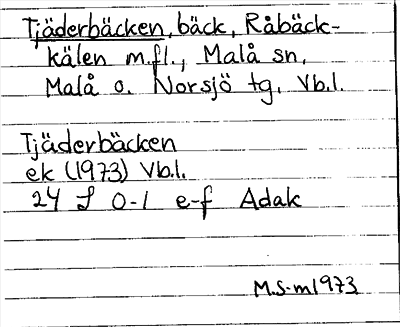 Tjäderbäcken, bäck, Råbäck-
kälen m.fl., Malå sn,
Malå o. Norsjö tg, Vb.l.
Tjäderbäcken
ek (1973) Vb.l.
24 J 0-1 e-f Adak
M.S-m 1973